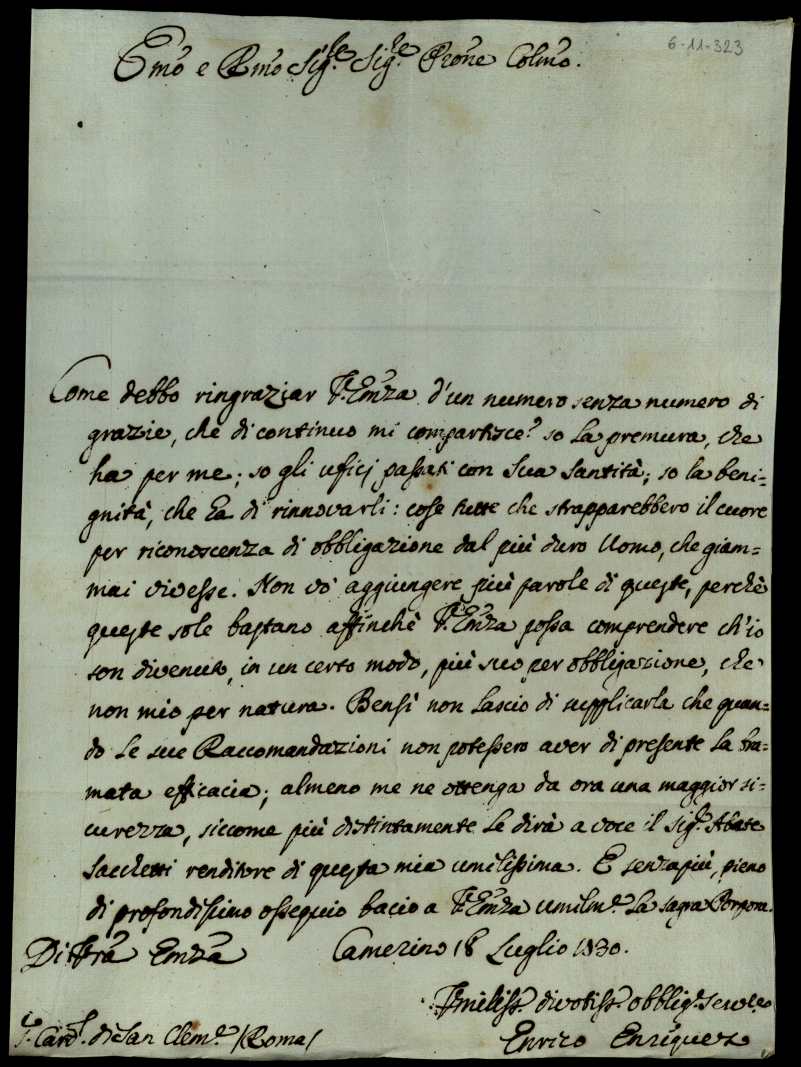 6-11-323
Emo e Rmo Sig.re Sig.re Prone Colmo.
Come debbo ringraziar V. Emza d'un numero senza numero di
grazie, che di continuo mi compartisce? so la premura, che
ha per me; so gli uficj passati con Sua Santità; so la beni-
gnità, che ha di rinnovarli: cose tutte che strapparebbero il cuore
per riconoscenza di obbligazione dal più duro Uomo, che giam=
mai vivesse. Non vò aggiungere più parole di queste, perchè
queste sole bastano affinchè V. Emza possa comprendere ch'io
son divenuto, in un certo modo, più suo per obbligazione, che
non mio per natura. Bensì non lascio di supplicarla che quan=
do le sue Raccomandazioni non potessero aver di presente la bra=
mata efficacia; almeno me ne ottenga da ora una maggior si-
curezza, siccome più distintamente le dirà a voce il Sig.r Abate
Sacchetti renditore di questa mia umilissima. E senza più, pieno
di profondissimo ossequio bacio a V. Emza umilm.e la sagra Porpora.
Di Vra Emza Camerino 18 Luglio 1730.
Umiliss. divotiss. obblig. serv.re
S. Card. di San Clem.e /Roma/ Enrico Enriquez